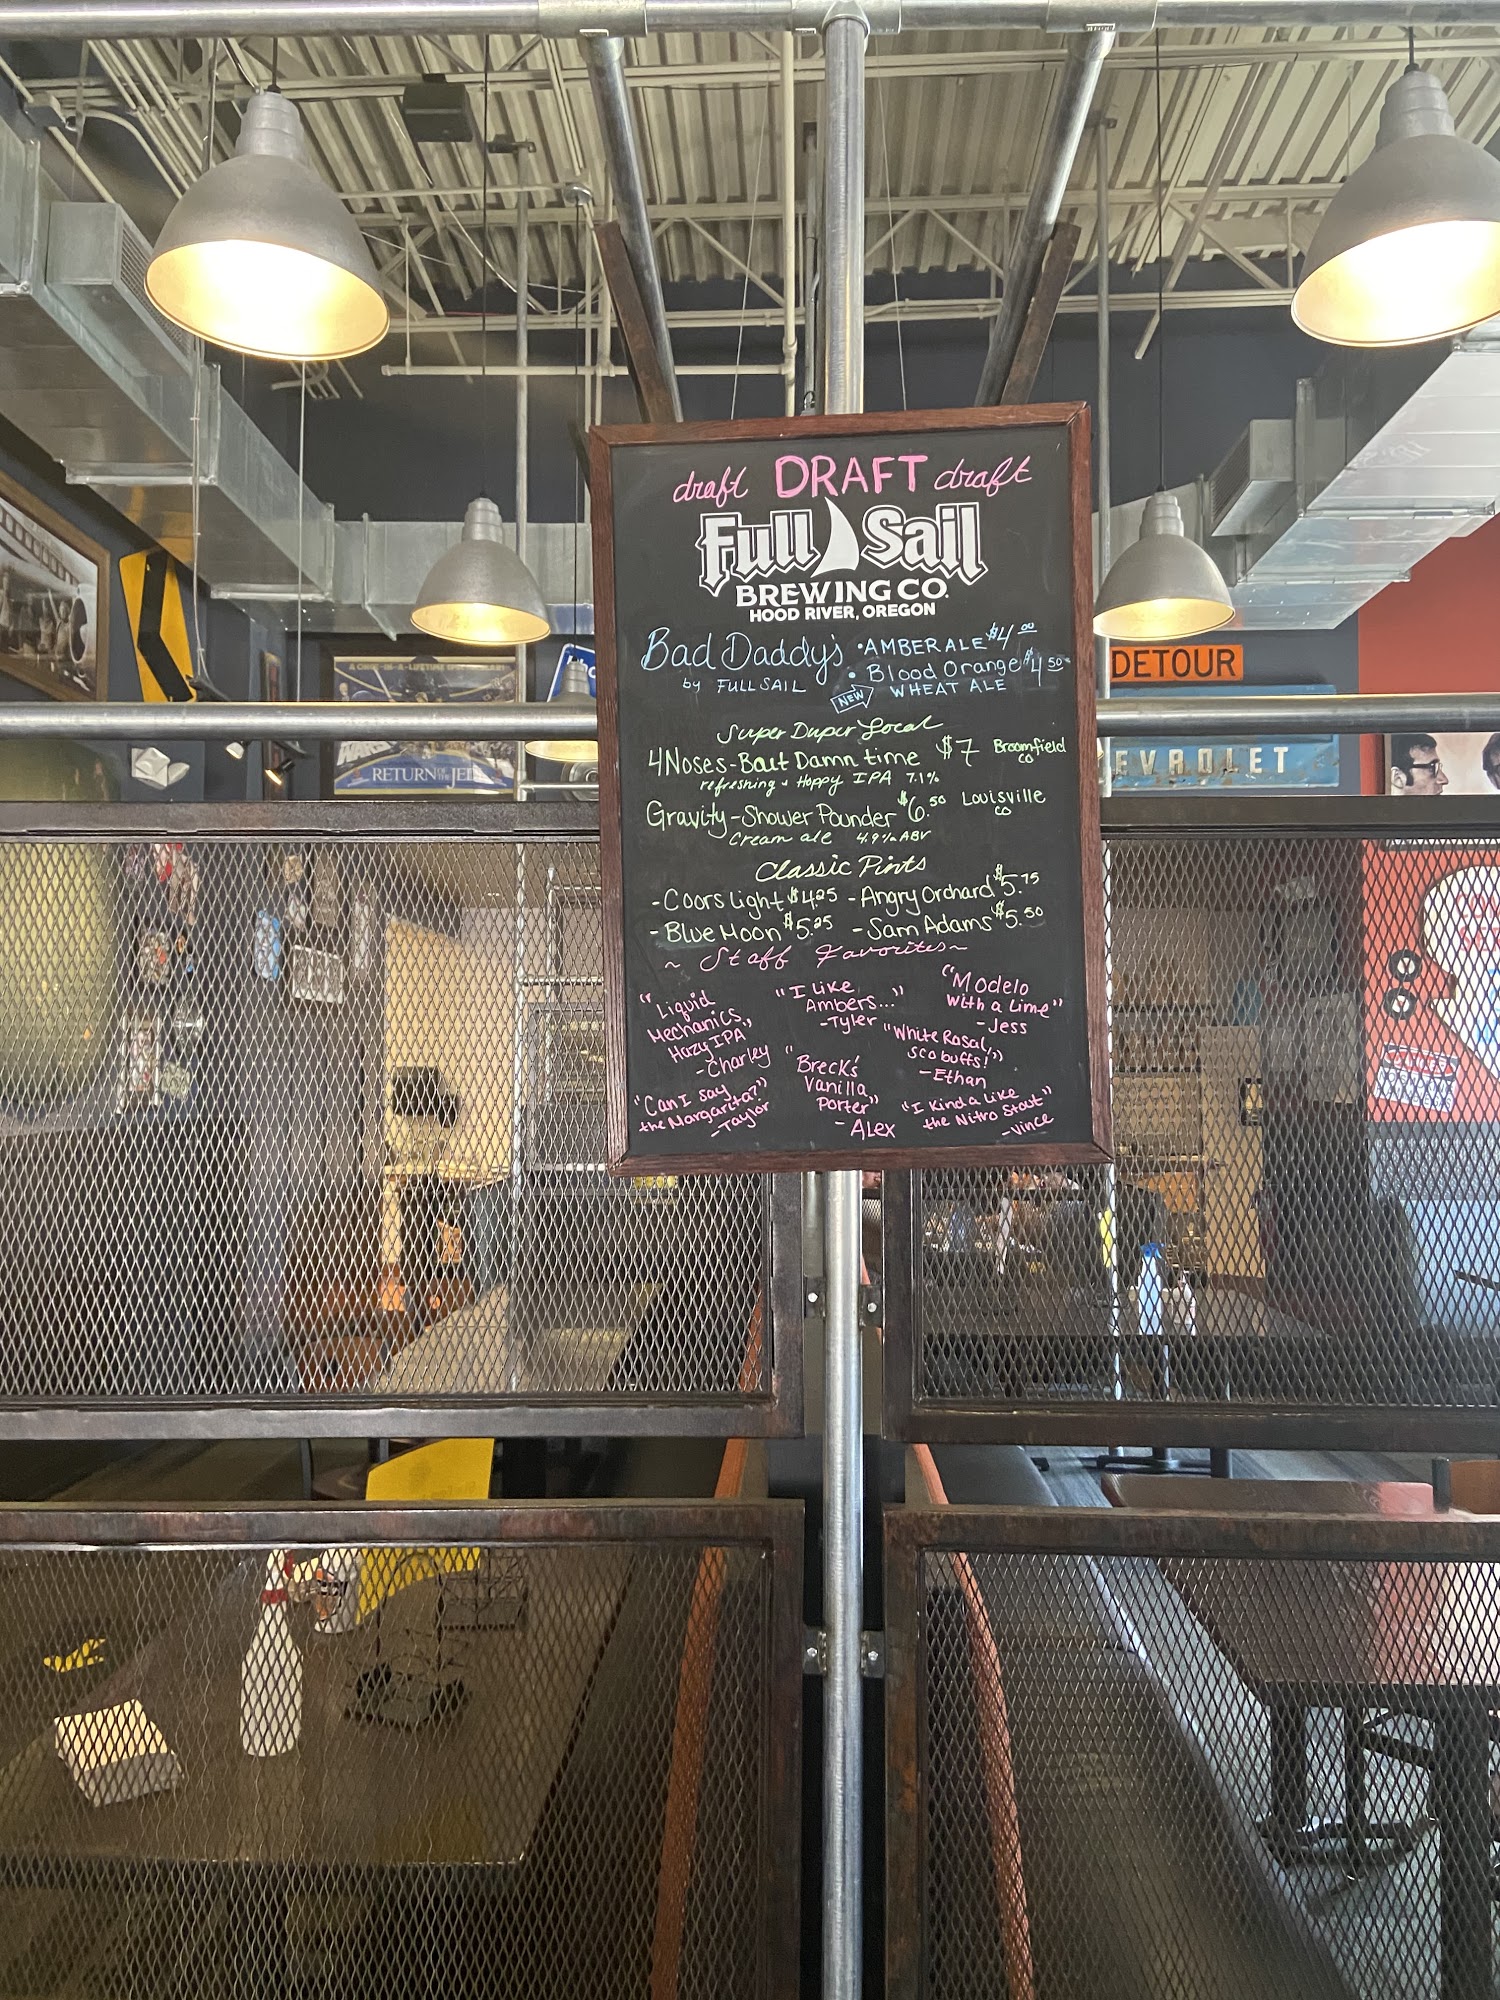 draft DRAFT draft
Full Sail
BREWING CO.
HOOD RIVER, OREGON
Bad Daddy's
by FULL SAIL
• AMBER ALE $4.00
• Blood Orange $4.50
WHEAT ALE
NEW
Super Duper Local
4Noses-Bout Damn time $7 Broomfield
CO
refreshing + Hoppy IPA 7.1%
Gravity-Shower Pounder $6.50 Louisville
CO
Cream ale 4.9% ABV
Classic Pints
-Coors Light $4.25 -Angry Orchard $5.75
-Blue Moon $5.25 -Sam Adams $5.50
~ Staff Favorites ~
"Liquid
Mechanics,
Hazy IPA"
-Charley
"I Like
Ambers..."
-Tyler
"Modelo
with a Lime"
-Jess
"White Rasal,
sco buffs!"
-Ethan
"Can I say
the Margarita?"
-Taylor
"Breck's
Vanilla
Porter"
-ALex
"I Kinda Like
the Nitro Stout"
-Vince
DETOUR
EVROLET
RETURN OF THE JEDI